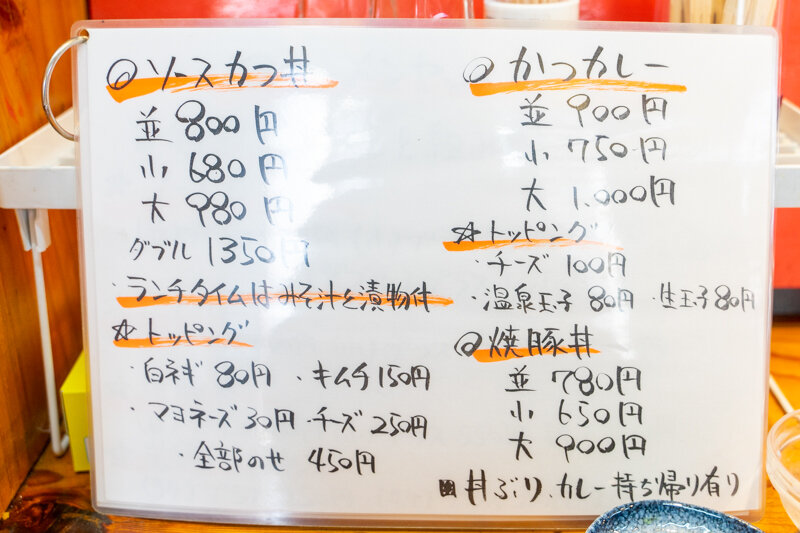 ◎ソースカツ丼
並 800円
小 680円
大 980円
ダブル 1350円
・ランチタイムはみそ汁と漬物付
☆トッピング
・白ネギ 80円 ・キムチ150円
・マヨネーズ30円・チーズ250円
・全部のせ 450円
◎かつカレー
並 900円
小 750円
大 1,000円
☆トッピング
・チーズ 100円
・温泉玉子 80円 ・生玉子80円
◎焼豚丼
並 780円
小 650円
大 900円
丼ぶり、カレー持ち帰り有り